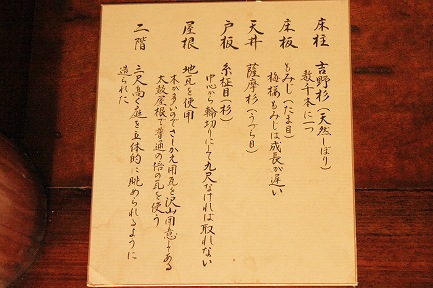 床柱 吉野杉(天然しぼり)
数千本に一つ
床板 もみじ(たま目)
梅桜もみじは成長が遅い
天井 薩摩杉(うづら目)
戸板 糸柾目(杉)
中心から輪切りにして九尺なければ取れない
屋根 地瓦を使用
木が多いのでさしかえ用瓦を沢山用意してある
太鼓屋根で普通の倍の瓦を使う
二階 三尺高く庭を立体的に眺められるように
造られた